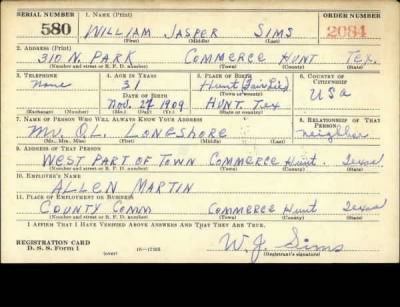 SERIAL NUMBER 1. NAME (Print) ORDER NUMBER
580 WILLIAM JASPER SIMS 2084
(First) (Middle) (Last)
2. ADDRESS (Print)
310 N. PARK COMMERCE HUNT TEX.
(Number and street or R. F. D. number) (Town) (County) (State)
3. TELEPHONE 4. AGE IN YEARS 5. PLACE OF BIRTH 6. COUNTRY OF CITIZENSHIP
None 31 Hunt (Fairlie) USA
DATE OF BIRTH (Town or county)
Nov. 27 1909 HUNT. Tex
(Exchange) (Number) (Mo.) (Day) (Yr.) (State or country)
7. NAME OF PERSON WHO WILL ALWAYS KNOW YOUR ADDRESS 8. RELATIONSHIP OF THAT PERSON
Mr. O.L. LONGSHORE neighbor
(Mr., Mrs., Miss) (First) (Middle) (Last)
9. ADDRESS OF THAT PERSON
WEST PART OF TOWN COMMERCE Hunt. Texas
(Number and street or R. F. D. number) (Town) (County) (State)
10. EMPLOYER'S NAME
ALLEN MARTIN
11. PLACE OF EMPLOYMENT OR BUSINESS
COUNTY COMM COMMERCE Hunt Texas
(Number and street or R. F. D. number) (Town) (County) (State)
I AFFIRM THAT I HAVE VERIFIED ABOVE ANSWERS AND THAT THEY ARE TRUE.
REGISTRATION CARD
D. S. S. Form 1 (over) W. J. Sims
(Registrant's signature)